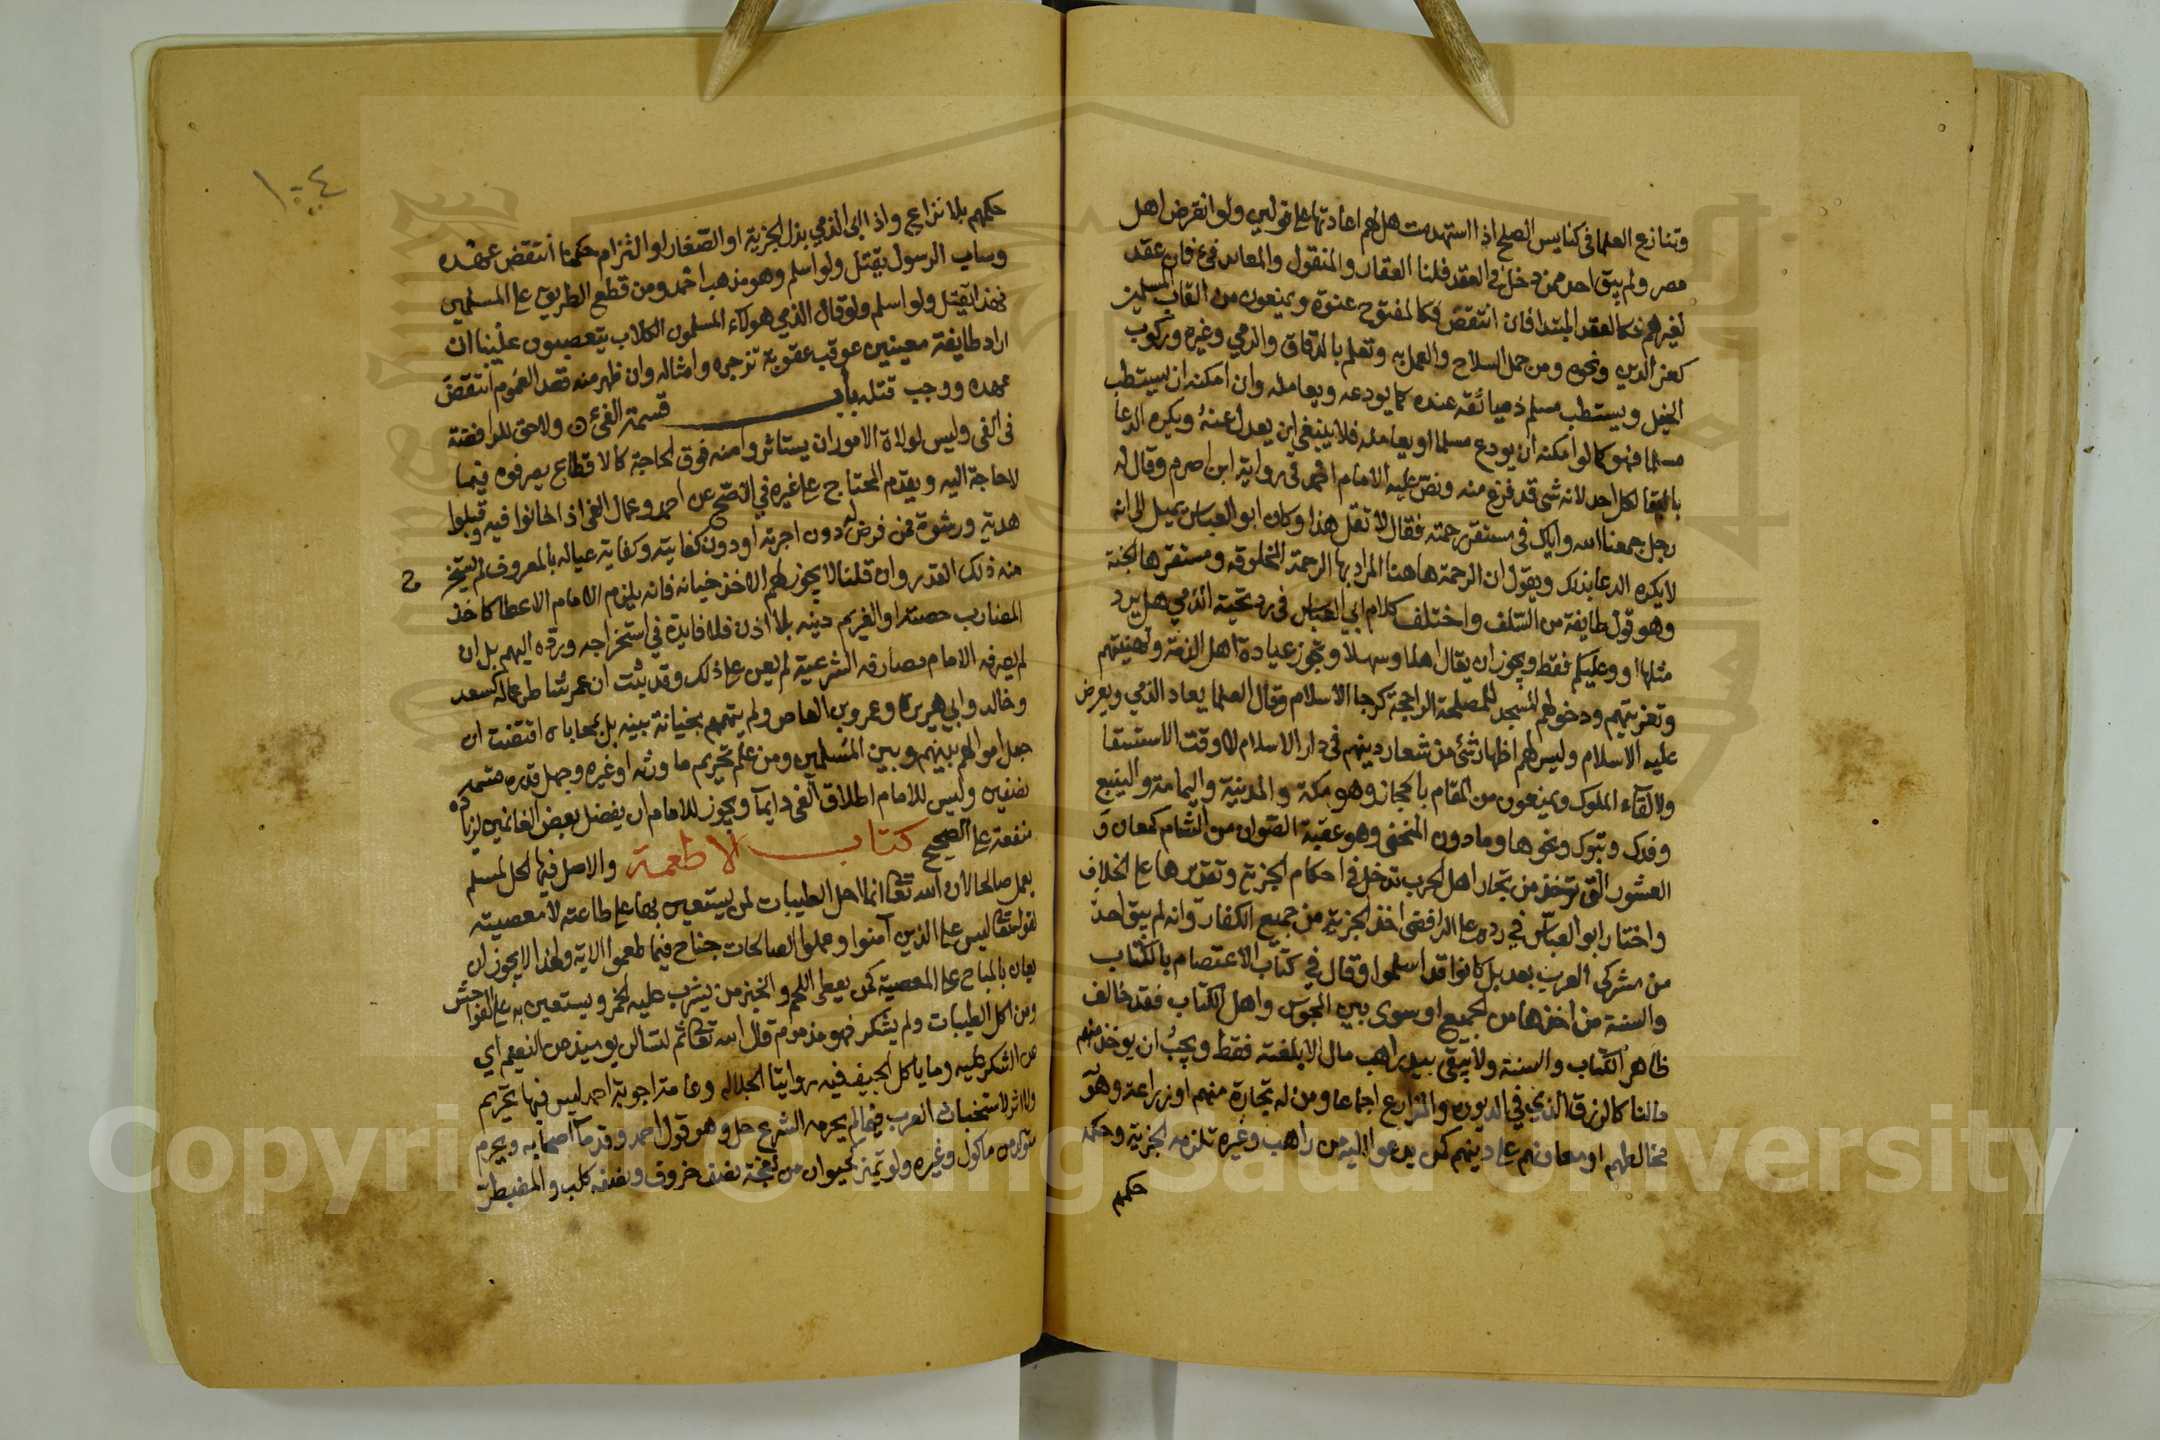 وتنازع العلما في كنايس الصلح اذا استهدمت هل لهم اعادتها على قولين ولو انقرض اهل
مصر ولم يبق احد ممن دخل في العقد فلنا العقار والمنقول والمعابد فئ فان عقد
لغيرهم فكالعقد المبتدا فان انتقض فكالمفتوح عنوة ويمنعون من القاب المسلمين
كعز الدين ونحوه ومن حمل السلاح والعمل به وتعلم بالدقاق والرمي وغيره وركوب
الخيل ويستطب مسلم ذميا ثقة عنده كما يودعه ويعامله وان امكنه ان يستطب
مسلما فهو كما لو امكنه ان يودع مسلما او يعامله فلا ينبغي ان يعدل عنه ويكره الدعا
بالبقا لكل احد لانه شى قد فرغ منه ونص عليه الامام احمد في رواية ابن اصرم وقال له
رجل جمعنا الله واياك في مستقر رحمته فقال لا تقل هذا وكان ابو العباس يميل الى انه
لا يكره الدعا بذلك ويقول ان الرحمة هاهنا المراد بها الرحمة المخلوقه ومستقرها الجنة
وهو قول طايفة من السلف واختلف كلام ابي العباس في رد تحية الذمي هل يرد
مثلها او وعليكم فقط ويجوز ان يقال اهلا وسهلا وتجوز عيادة اهل الذمة وتهنيتهم
وتعزيتهم ودخولهم المسجد للمصلحة الراجحة كرجا الاسلام وقال العلما يعاد الذمي ويعرض
عليه الاسلام وليس لهم اظهار شئ من شعار دينهم في دار الاسلام لا وقت الاستسقا
ولا لقآء الملوك ويمنعون من المقام بالحجاز وهو مكة والمدينة واليمامة والينبع
وفدك وتبوك ونحوها وما دون المنحنى وهو عقبة الصوان من الشام كمعان و
العشور التي تؤخذ من تجار اهل الحرب تدخل في احكام الجزية وتقديرها على الخلاف
واختار ابو العباس في رده على الرافضي اخذ الجزية من جميع الكفار وانه لم يبق احد
من مشركى العرب بعد بل كانوا قد اسلموا وقال في كتاب الاعتصام بالكتاب
والسنة من اخذها من الجميع او سوى بين المجوس واهل الكتاب فقد خالف
ظاهر الكتاب والسنة ولا يبقى بيد راهب مال الا بلغته فقط ويجب ان يوخذ منهم
مالنا كالرزق الذي في الديورة والمزارع اجماعا ومن له تجارة منهم او زراعة وهو
مخالطهم او معاونهم على دينهم كمن يدعو اليه من راهب وغيره تلزمه الجزية وحكمه
حكمهم
١٠٤
حكمهم بلا نزاع واذا ابى الذمي بذل الجزية او الصغار او التزام حكمنا انتقض عهده
وساب الرسول يقتل ولو اسلم وهو مذهب احمد ومن قطع الطريق على المسلمين
فهذا يقتل ولو اسلم ولو قال الذمي هولاء المسلمون الكلاب يتعصبون علينا ان
اراد طايفة معينين عوقب عقوبة تزجره وامثاله وان ظهر منه قصد العموم انتقض
عهده ووجب قتله باب قسمة الفئ ولا حق للرافضة
فى الفى وليس لولاة الامور ان يستاثروا منه فوق الحاجة كالاقطاع يصرفونه فيما
لا حاجة اليه ويقدم المحتاج على غيره في الصح عن احمد وعمال الفى اذا خانوا فيه وقبلوا
هدية ورشوة فمن فرض له دون اجرته او دون كفايته وكفاية عياله بالمعروف لم يستخرج
منه ذلك القدر وان قلنا لا يجوز لهم الاخذ خيانة فانه يلزم الامام الاعطا كاخذ
المضارب حصته او الغريم دينه بلا اذن فلا فايدة في استخراجه ورده اليهم بل ان
لم يصرفه الامام مصارفه الشرعية لم يعن على ذلك وقد ثبت ان عمر شاطر عماله كسعد
وخالد وابي هريرة وعمرو بن العاص ولم يتهمهم بخيانة بينه بل بمحاباة اقتضت ان
جعل اموالهم بينهم وبين المسلمين ومن علم تحريم ما ورثه او غيره وجهل قدره قسمه
نصفين وليس للامام اطلاق الفى دايما ويجوز للامام ان يفضل بعض الغانمين لزيادة
منفعة على الصحيح كتاب الاطعمة والاصل فيها الحل لمسلم
يعمل صالحا لان الله تعالى انما احل الطيبات لمن يستعين بها على طاعته لا معصيته
لقوله تعالى ليس على الذين آمنوا وعملوا الصالحات جناح فيما طعموا الاية ولهذا لا يجوز ان
يعان بالمباح على المعصية كمن يعطى اللحم والخبز من يشرب عليه الخمر ويستعين به على الفواحش
ومن اكل الطيبات ولم يشكر فهو مذموم قال الله تعالى ثم لتسالن يوميذ عن النعيم اي
عن الشكر عليه وما ياكل الجيف فيه روايتا الجلاله وعامة اجوبة احمد ليس فيها تحريم
ولا اثر لاستخباث العرب فيما لم يحرمه الشرع حل وهو قول احمد وقدماء اصحابه ويحرم
متولد من ماكول وغيره ولو تميز كحيوان من نعجة نصفه خروف ونصفه كلب والمضطر